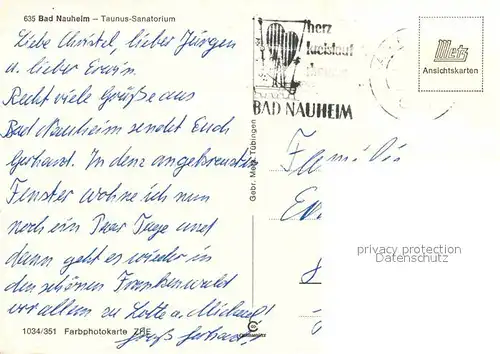 635 Bad Nauheim – Taunus-Sanatorium
Liebe Christel, lieber Jürgen
u. lieber Erwin.
Recht viele Grüße aus
Bad Nauheim sendet Euch
Gerhard. In dem angekreuzten
Fenster wohne ich nun
noch ein Paar Tage und
dann geht es wieder in
den schönen Frankenwald
vor allem zu Lotte u. Michael!
Gruß Gerhard!
1034/351 Farbphotokarte
Gebr. Metz Tübingen
herz
kreislauf
BAD NAUHEIM
Metz
Ansichtskarten
Familie
privacy protection
Datenschutz